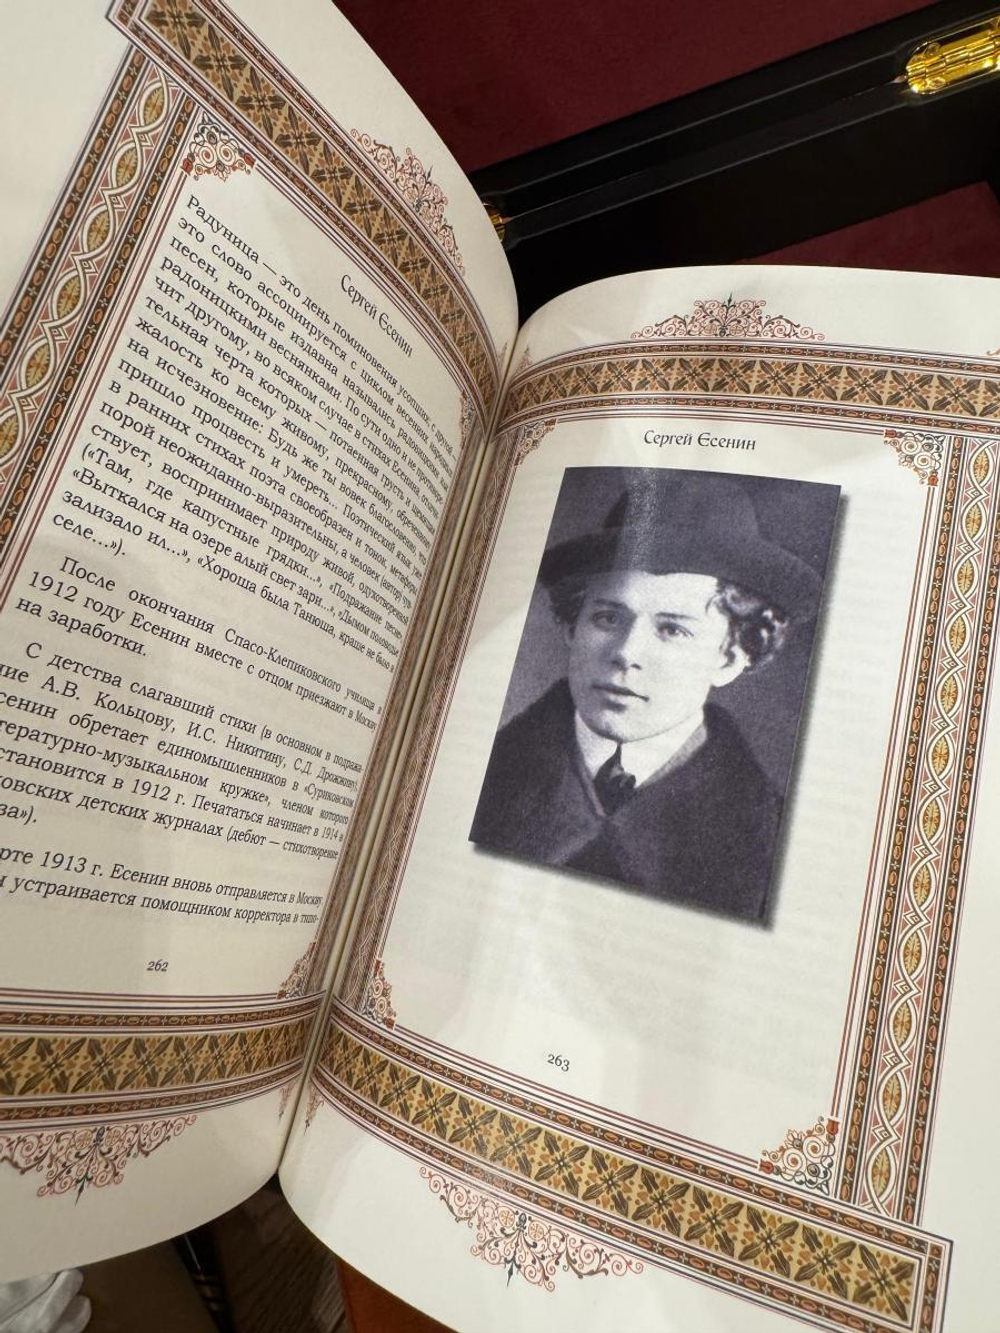 Сергей Есенин
Радуница — это день поминовения усопших, с другой
это слово ассоциируется с циклом весенних народных
песен, которые издавна назывались радовицкими или
радоницкими веснянками. По сути одно и не противоре-
чит другому, во всяком случае в стихах Есенина, отличи-
тельная черта которых — потаенная грусть и щемящая
жалость ко всему живому, прекрасному, обреченному
на исчезновение: Будь же ты вовек благословенно, что
пришло процвесть и умереть... Поэтический язык уже
в ранних стихах поэта своеобразен и тонок, метафоры
порой неожиданно-выразительны, а человек (автор) чув-
ствует, воспринимает природу живой, одухотворенной
(«Там, где капустные грядки...», «Подражание песне»
«Выткался на озере алый свет зари...», «Дымом половодье
зализало ил...», «Хороша была Танюша, краше не было в
селе...»).
После окончания Спасо-Клепиковского училища в
1912 году Есенин вместе с отцом приезжают в Москву
на заработки.
С детства слагавший стихи (в основном в подража-
ние А.В. Кольцову, И.С. Никитину, С.Д. Дрожжину),
Есенин обретает единомышленников в «Суриковском
литературно-музыкальном кружке», членом которого
становится в 1912 г. Печататься начинает в 1914 в
московских детских журналах (дебют — стихотворение
1913 г. Есенин вновь отправляется в Москву
устраивается помощником корректора в типо-
262
Сергей Есенин
263